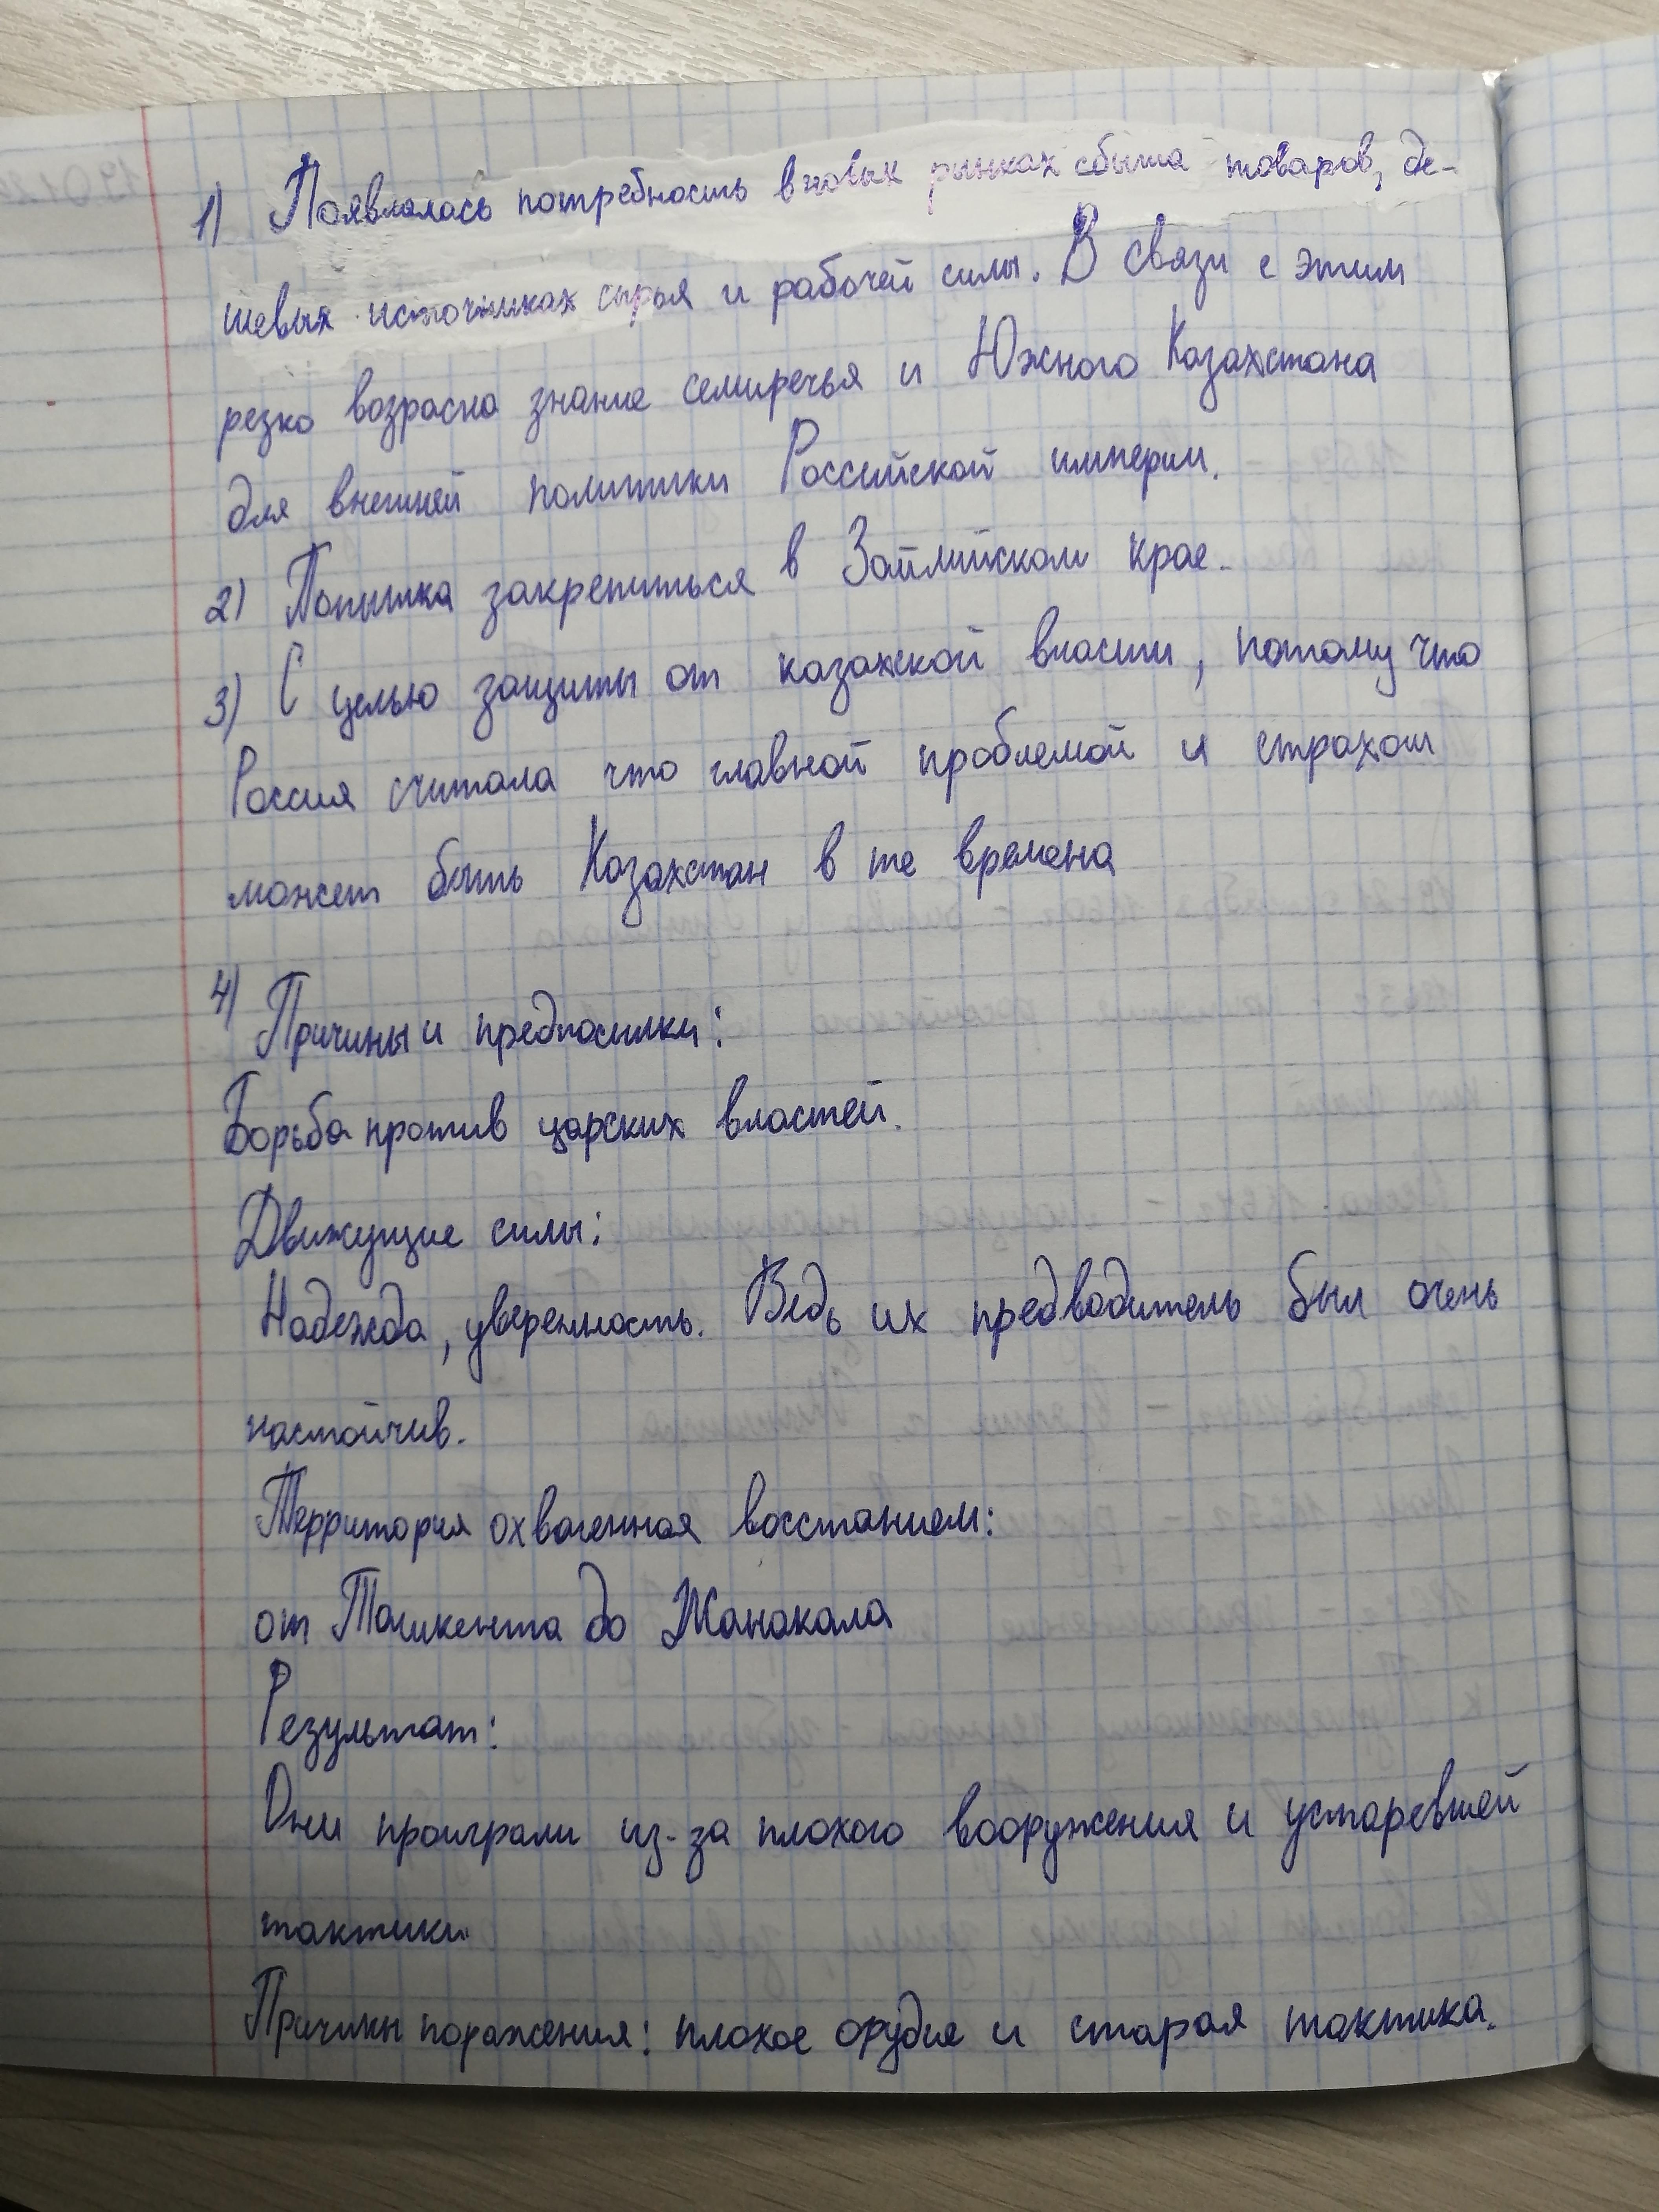 1) Появлалась потребность в новых рынках сбыта товаров, де-
шевых источниках сырья и рабочей силы. В связи с этим
резко возрасло знание семиречья и Южного Казахстана
для внешней политики Российской империи.
2) Попытка закрепиться в Заилийском крае.
3) С целью защиты от казахской власти, потому что
Россия считала что главной проблемой и страхом
может быть Казахстан в те времена
4) Причины и предпосылки:
Борьба против царских властей.
Движущие силы:
Надежда, уверенность. Ведь их предводитель был очень
настойчив.
Территория охваченная восстанием:
от Ташкента до Жанакала
Результат:
Они проиграли из-за плохого вооружения и устаревшей
тактики
Причины поражения: плохое орудие и старая тактика.